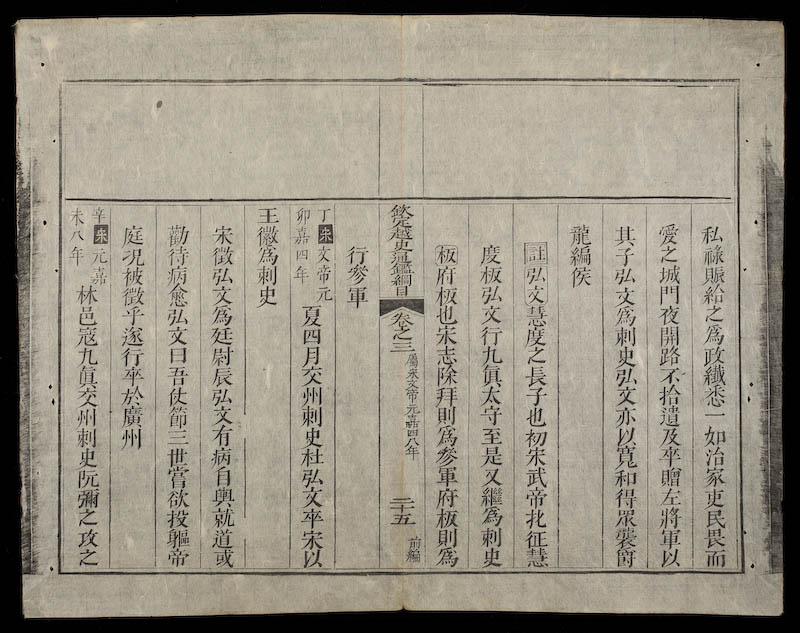 私祿賑給之爲政纖悉一如治家吏民畏而
愛之城門夜開路不拾遺及卒贈左將軍以
其子弘文爲刺史弘文亦以寬和得眾襲爵
龍編侯
註弘文慧度之長子也初宋武帝北征慧
度板弘文行九眞太守至是又繼爲刺史
板府板也宋志除拜則爲參軍府板則爲
欽定越史通鑑綱目 卷之三 屬宋文帝元嘉四八年 二十五 前編
行參軍
丁卯宋文帝元嘉四年 夏四月交州刺史杜弘文卒宋以
王徽爲刺史
宋徵弘文爲廷尉辰弘文有病自輿就道或
勸待病愈弘文曰吾仗節三世嘗欲投軀帝
庭况被徵乎遂行卒於廣州
辛未宋元嘉八年 林邑寇九眞交州刺史阮彌之攻之